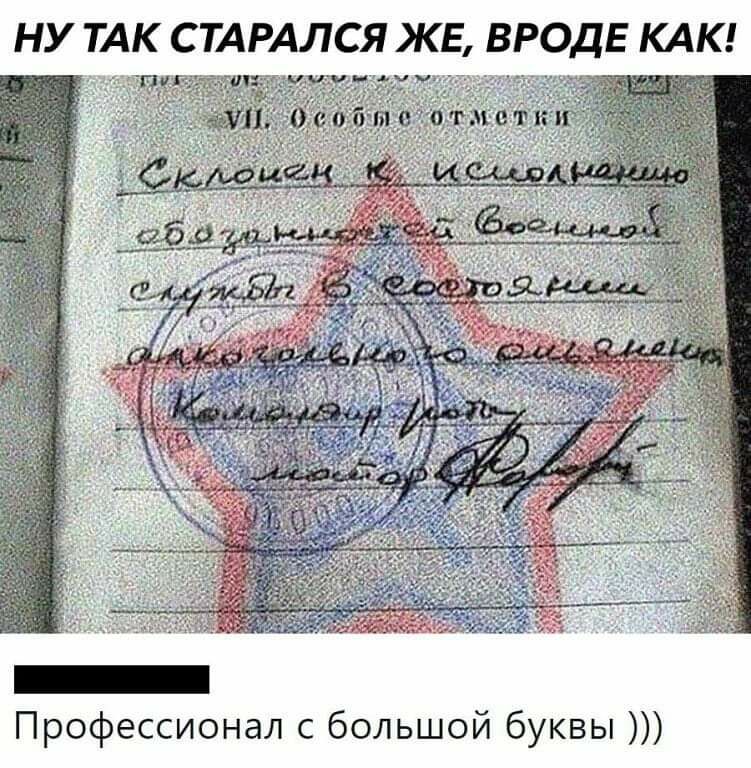 НУ ТАК СТАРАЛСЯ ЖЕ, ВРОДЕ КАК!
VII. Особые отметки
Склонен к исполнению
обязанностей военной
службы в состоянии
алкогольного опьянения
Командир роты
майор
Профессионал с большой буквы )))